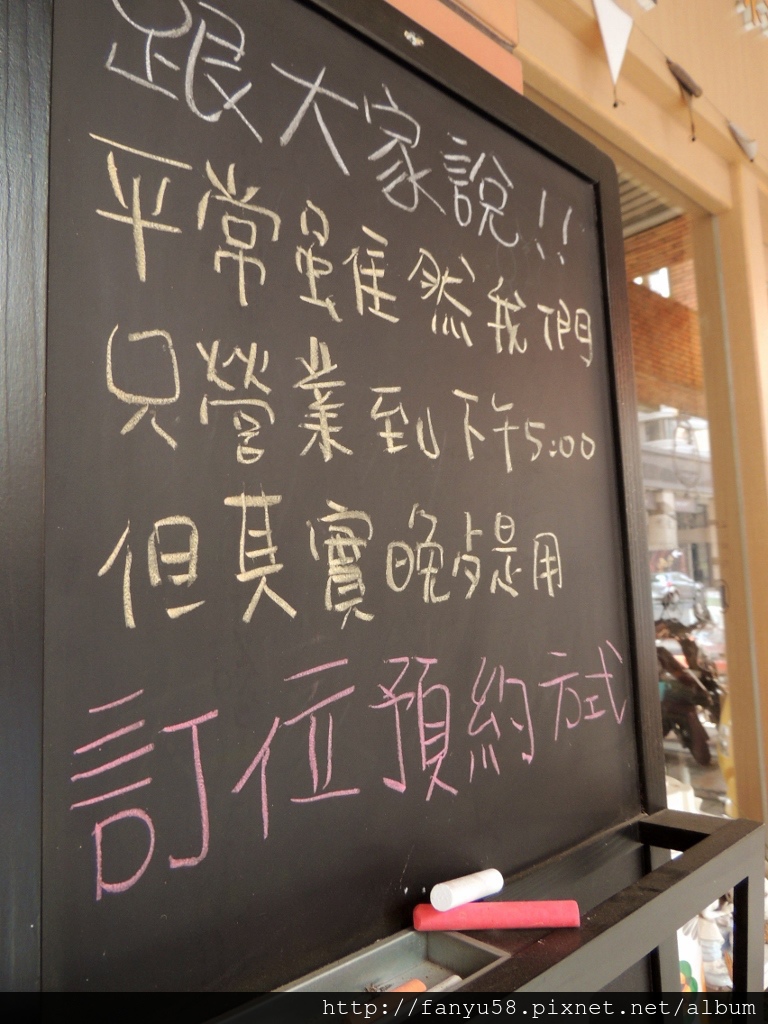 跟大家說!!
平常雖然我們
只營業到下午5:00
但其實晚點是用
訂位預約方式
http://fanyu58.pixnet.net/album